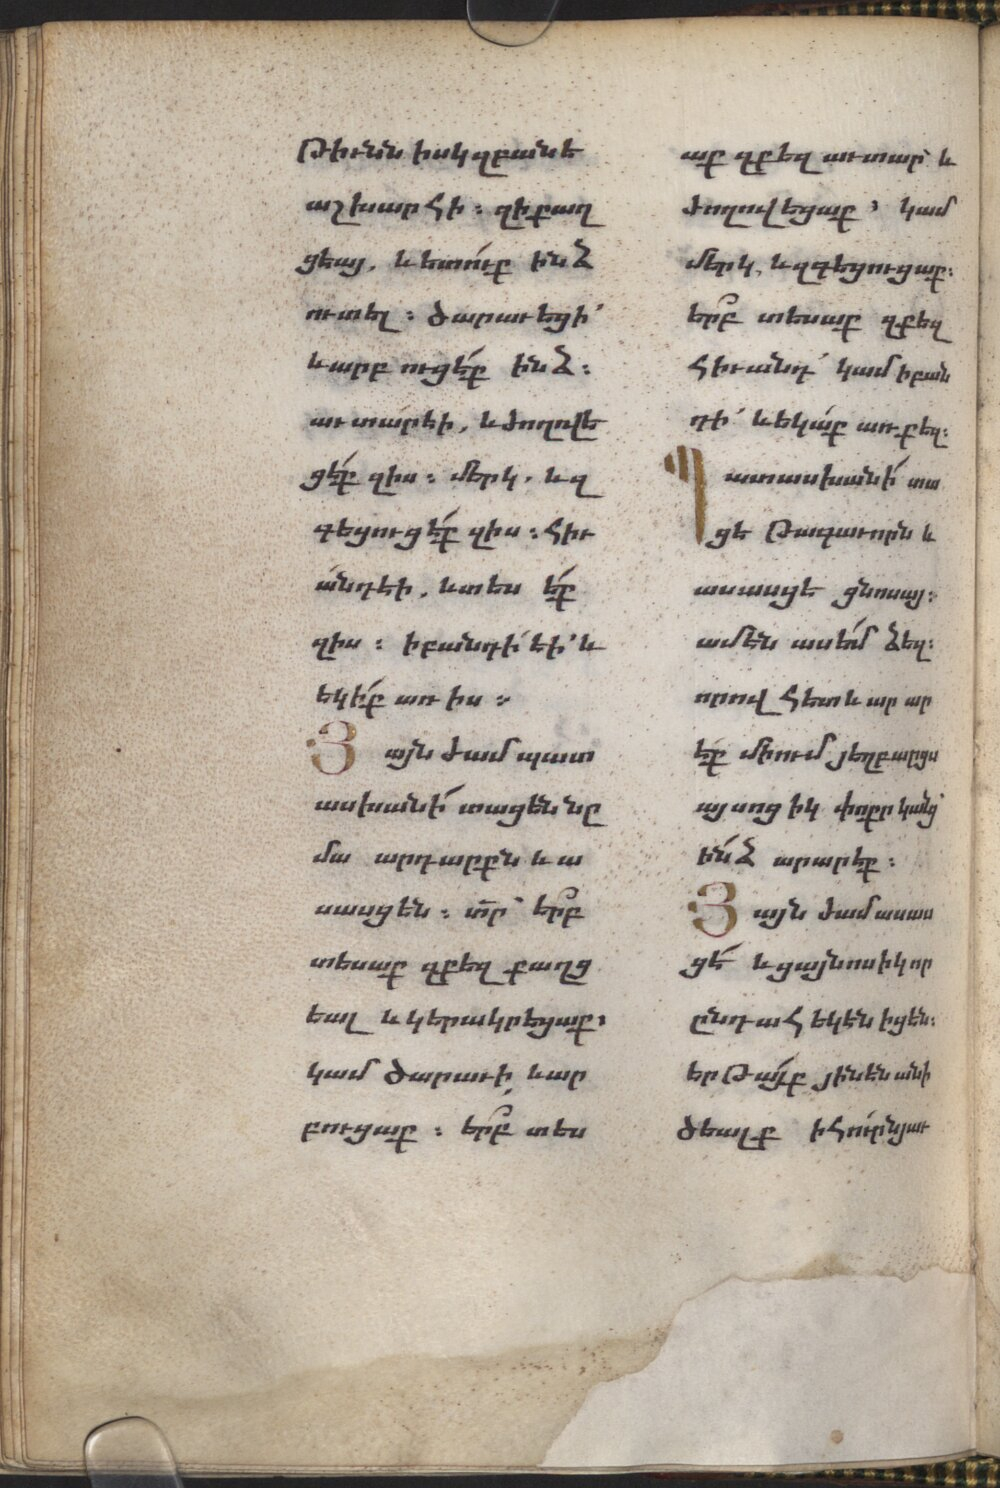 թիւնն իսկզբանե
աշխարհի։ զիքաղ
ցեայ, և ետուք ինձ
ուտել։ ծարաւեցի՝
և արբուցէք ինձ։
աւտարեի, և ժողովե
ցէք զիս։ մերկ, և զ
գեցուցէք զիս։ հիւ
անդեի, և տես էք
զիս։ իբանդի եի՝ և
եկիք առ իս։
Յայնժամ պատ
ասխանի տացեն նը
մա արդարքն և ա
սասցեն։ տր՝ երբ
տեսաք զքեզ քաղց
եալ և կերակրեցաք,
կամ ծարաւի, և ար
բուցաք։ երբ տես
աք զքեզ աւտար՝ և
ժողովեցաք, կամ
մերկ, և զգեցուցաք։
երբ տեսաք զքեզ
հիւանդ՝ կամ իբան
դի՝ և եկաք առ քեզ։
Պատասխանի տա
ցե թագաւորն և
ասասցե ցնոսայ։
ամեն ասեմ ձեզ։
որով հետև արար
էք միում յեղբարցս
այսոցիկ փոքրկանց՝
ինձ արարէք։
Յայնժամ ասաս
ցե և ցայնոսիկ որ
ընդ ահեկեն իցեն։
երթայք յինեն անի
ծեալք ի հուրն յաւ